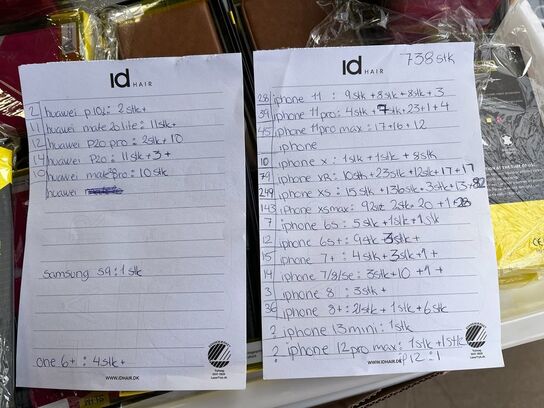 id HAIR
2 huawei p10i: 2stk+
11 huawei mate 20 lite: 11stk+
12 huawei P20 pro: 2stk + 10
14 huawei P20: 11stk + 3 +
10 huawei mate pro: 10stk
huawei
Samsung S9: 1stk
one 6+: 4stk+
WWW.IDHAIR.DK
id HAIR
738stk
28 iphone 11: 9stk + 8stk + 8stk + 3
39 iphone 11pro: 4stk + 7stk + 23 + 1 + 4
45 iphone 11pro max: 17 + 16 + 12
iphone
10 iphone x: 1stk + 1stk + 8stk
79 iphone XR: 10stk + 23stk + 12stk + 17 + 17
249 iphone XS: 15stk + 136stk + 3stk + 13 + 82
143 iphone xsmax: 92stk 2stk + 20 + 1 + 28
7 iphone 6S: 5stk + 1stk + 1stk
12 iphone 6S+: 9stk 3stk +
15 iphone 7+: 4stk + 3stk + 1 +
14 iphone 7/8/se: 3stk + 10 + 1 +
3 iphone 8: 3stk +
36 iphone 8+: 21stk + 1stk + 6stk
2 iphone 13mini: 1stk
2 iphone 12pro max: 1stk + 1stk
P12: 1
WWW.IDHAIR.DK